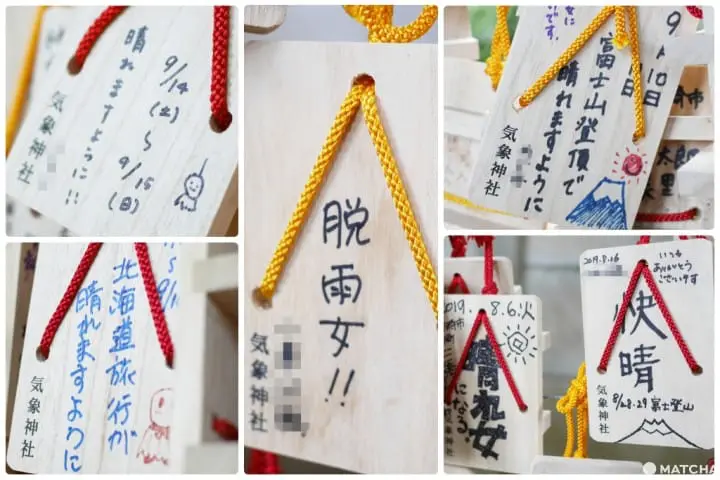 9/14(土)〜9/15(日)
晴れますように!!
気象神社
脱雨女!!
気象神社
9
10日
富士山登頂で
晴れますように
気象神社
太郎
北海道旅行が
晴れますように
気象神社
2019. 8.6.火
晴れ女
になる。
気象神社
2019.8.16
いつも
ありがとう
ございます
快晴
8/28.29 富士登山
気象神社
MATCHA